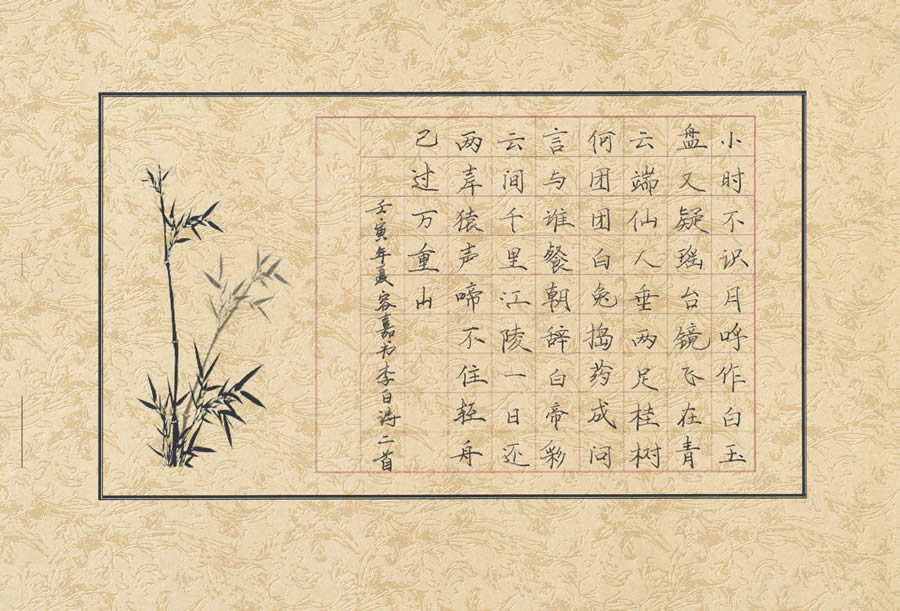 小时不识月呼作白玉
盘又疑瑶台镜飞在青
云端仙人垂两足桂树
何团团白兔捣药成问
言与谁餐朝辞白帝彩
云间千里江陵一日还
两岸猿声啼不住轻舟
已过万重山
壬寅年夏容嘉书李白诗二首